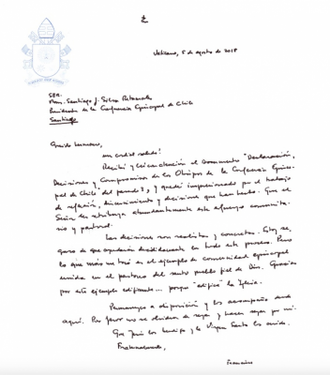 Vaticano, 5 de agosto de 2018
SER.
Mons. Santiago J. Silva Retamales
Presidente de la Conferencia Episcopal de Chile
Santiago
Querido hermano,
un cordial saludo!
Recibí y leí con atención el documento "Declaración,
Decisiones y Compromisos de los Obispos de la Conferencia Episco-
pal de Chile" del pasado 3, y quedé impresionado por el trabajo
de reflexión, discernimiento y decisiones que han hecho. Que el
Señor les retribuya abundantemente este esfuerzo comunita-
rio y pastoral.
Las decisiones son realistas y concretas. Estoy se-
guro de que ayudarán decididamente en todo este proceso. Pero
lo que más me tocó es el ejemplo de comunidad episcopal
unida en el pastoreo del santo pueblo fiel de Dios. Gracias
por este ejemplo edificante... porque "edifica" la Iglesia.
Permanezco a disposición y los acompaño desde
aquí. Por favor no se olviden de rezar y hacer rezar por mí.
Que Jesús los bendiga y la Virgen Santa los cuide.
Fraternalmente,
Francisco